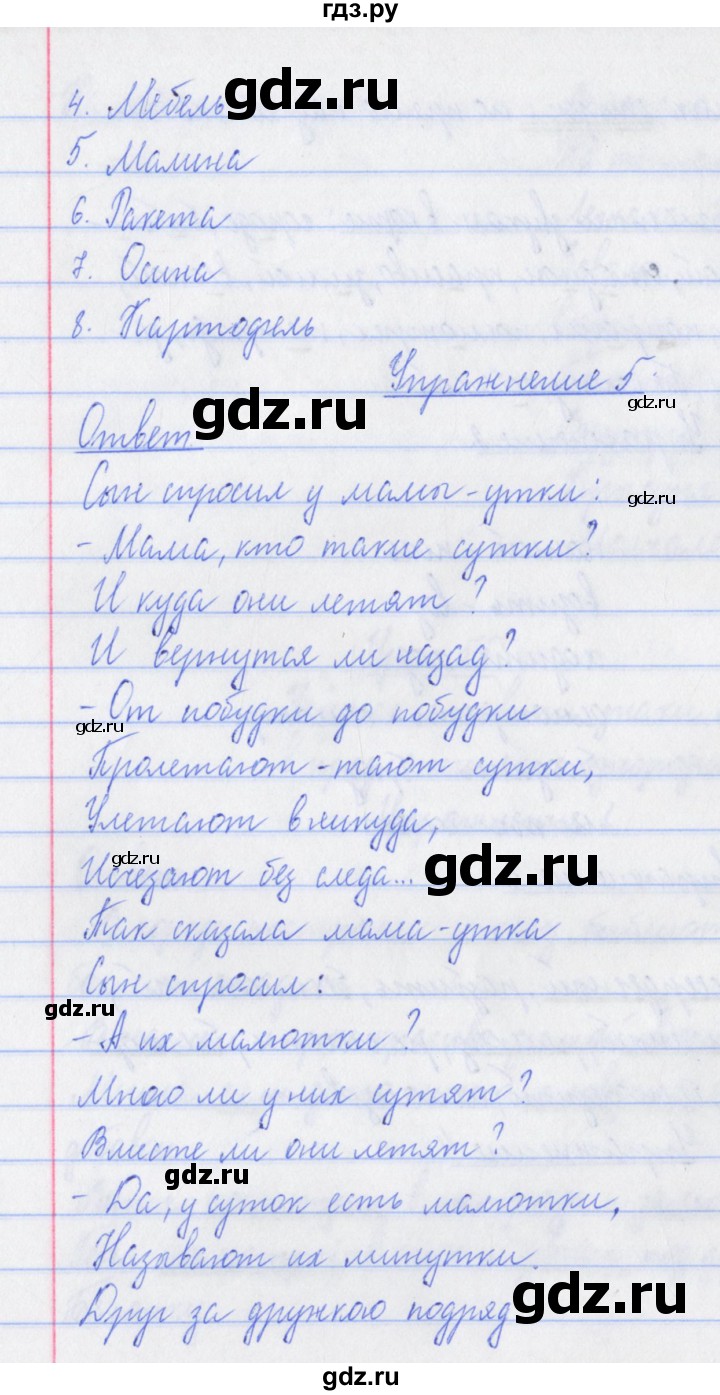 гдз.ру
4. Мебель
gdz.ru
5. Малина
6. Ракета
7. Осина
8. Картофель
Упражнение 5.
gdz.ru
gdz.ru
Ответ
Сын спросил у мамы-утки:
gdz.ru
- Мама, кто такие сутки?
И куда они летят?
И вернутся ли назад?
- От побудки до побудки
gdz.ru
Пролетают-тают сутки,
Улетают в никуда,
gdz.ru
Исчезают без следа...
gdz.ru
Так сказала мама-утка
Сын спросил:
gdz.ru
- А их малютки?
Много ли у них сутят?
Вместе ли они летят?
gdz.ru
- Да, у суток есть малютки,
Называют их минутки.
gdz.ru
Друг за дружкою подряд
gdz.ru